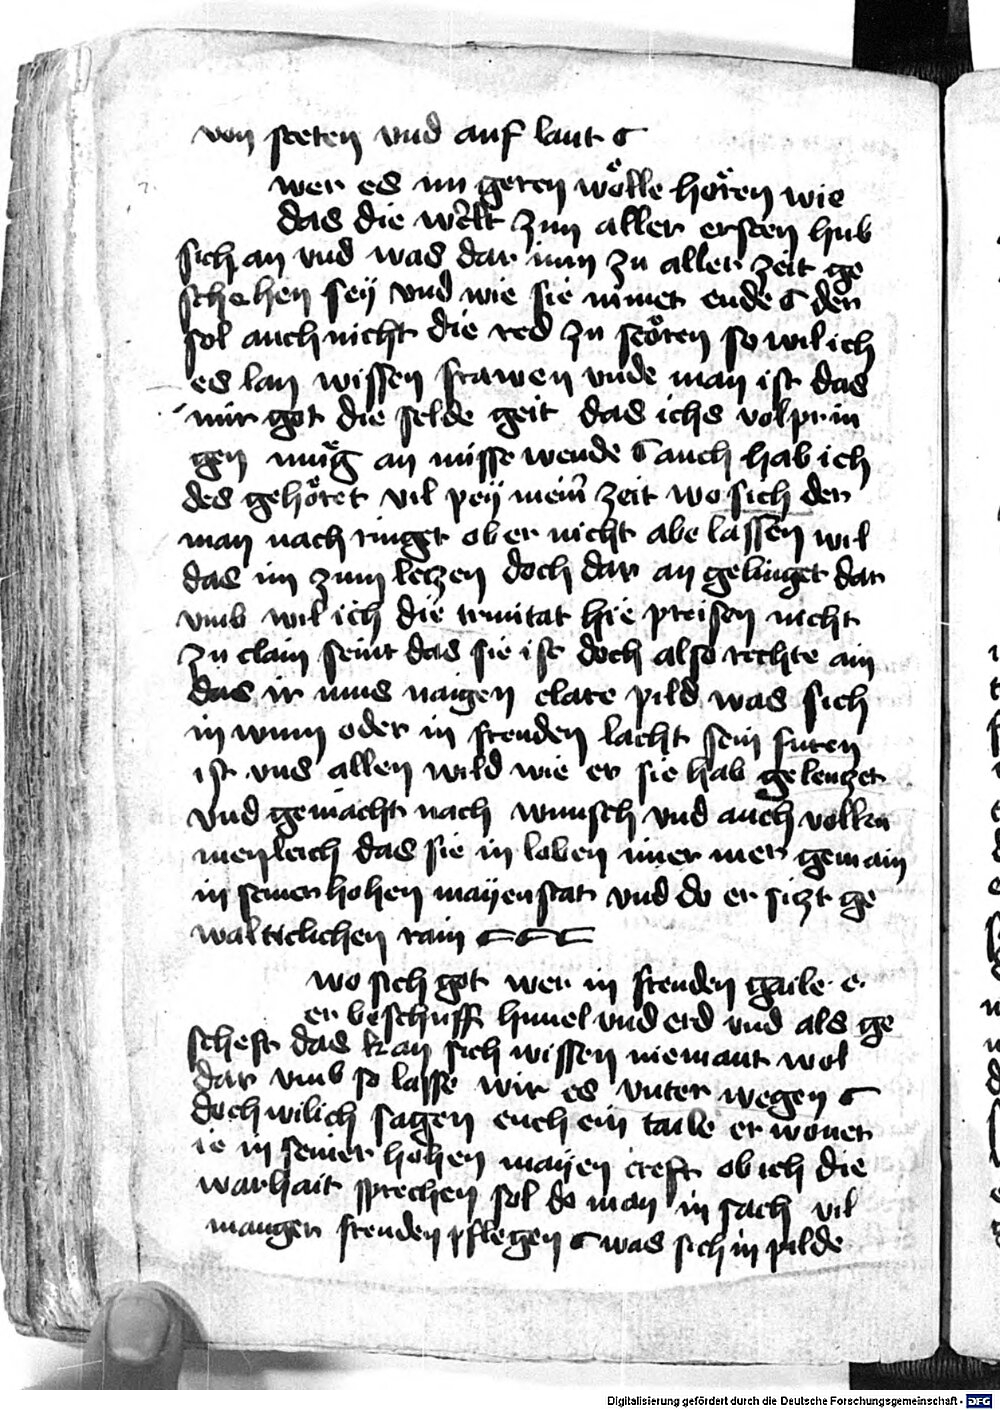 von steten vnd auf laut
wer es nu geren wölle hören wie
das die welt zum aller ersten hub
sich an vnd was dar inn zu aller zeit ge
schehen seÿ vnd wie sie nimet ende der
sol auch nicht die red zu stören so wil ich
es lan wissen frawen vnde man ist das
mir got die selde geit das ichs volprin
gen müg an missewende auch hab ich
des gehöret vil peÿ meiner zeit wo sich der
man nach ringet ober nicht abe lassen wil
das im zum leczen doch dar an gelinget dar
vmb wil ich die trinitat hie preisen nicht
zu clain seint das sie ist doch also rechte ain
das ir mus naigen clare pild was sich
in wunn oder in freuden lacht sein furen
ist vns allen wild wie er sie hab geleuczet
vnd gemacht nach wunsch vnd auch volku
menleich das sie in loben imer mer gemain
in seiner hohen maÿenstat vnd do er siczt ge
waltichlichen rain
wo sich got wer in freuden gaile er
er beschuff himel vnd erd vnd als ge
scheft das kan sich wissen niemant wol
dar vmb so lasse wir es vnter wegen
doch wil ich sagen euch ein taile er wonet
ie in seiner hohen maÿen creft ob ich die
warhait sprechen sol do man in sach vil
manger freuden pflegen was sich in pilde
Digitalisierung gefördert durch die Deutsche Forschungsgemeinschaft - DFG